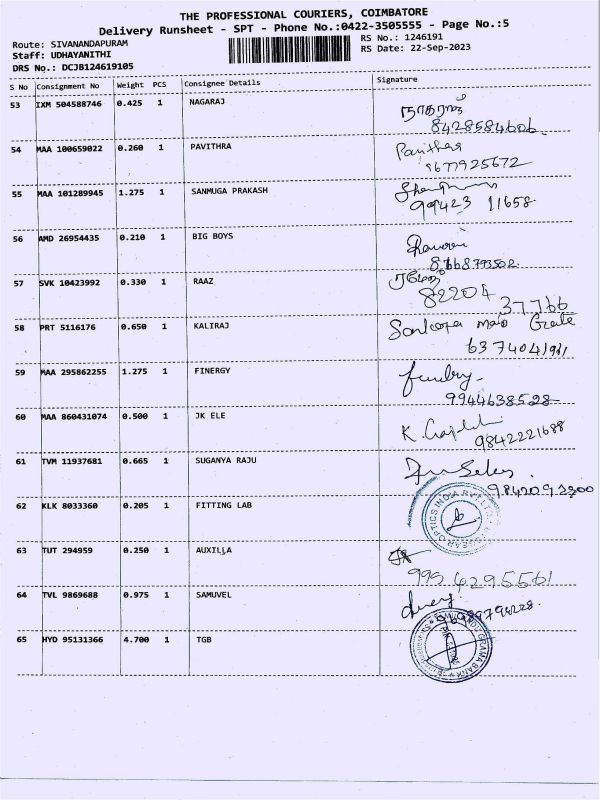 THE PROFESSIONAL COURIERS, COIMBATORE
Delivery Runsheet - SPT - Phone No.:0422-3505555 - Page No.:5
Route: SIVANANDAPURAM RS No.: 1246191
Staff: UDHAYANITHI RS Date: 22-Sep-2023
DRS No.: DCJB124619105
S No Consignment No Weight PCS Consignee Details Signature
53 IXM 504588746 0.425 1 NAGARAJ நாகராஜ்
8428584606
54 MAA 100659022 0.260 1 PAVITHRA Pavithra
9677925672
55 MAA 101289945 1.275 1 SANMUGA PRAKASH
99423 11658
56 AMD 26954435 0.210 1 BIG BOYS
8768793502
57 SVK 10423992 0.330 1 RAAZ ரமேஷ்
82204 37766
58 PRT 5116176 0.650 1 KALIRAJ
59 MAA 295862255 1.275 1 FINERGY
9944638528
60 MAA 860431074 0.500 1 JK ELE K.
9842221688
61 TVM 11937681 0.665 1 SUGANYA RAJU
62 KLK 8033360 0.205 1 FITTING LAB
63 TUT 294959 0.250 1 AUXILLA
64 TVL 9869688 0.975 1 SAMUVEL
65 HYD 95131366 4.700 1 TGB